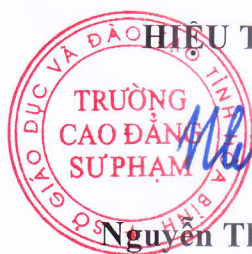 HIỆU T
SỞ GIÁO DỤC VÀ ĐÀO TỈNH BÌNH
TRƯỜNG
CAO ĐẲNG
SƯ PHẠM
Nguyễn